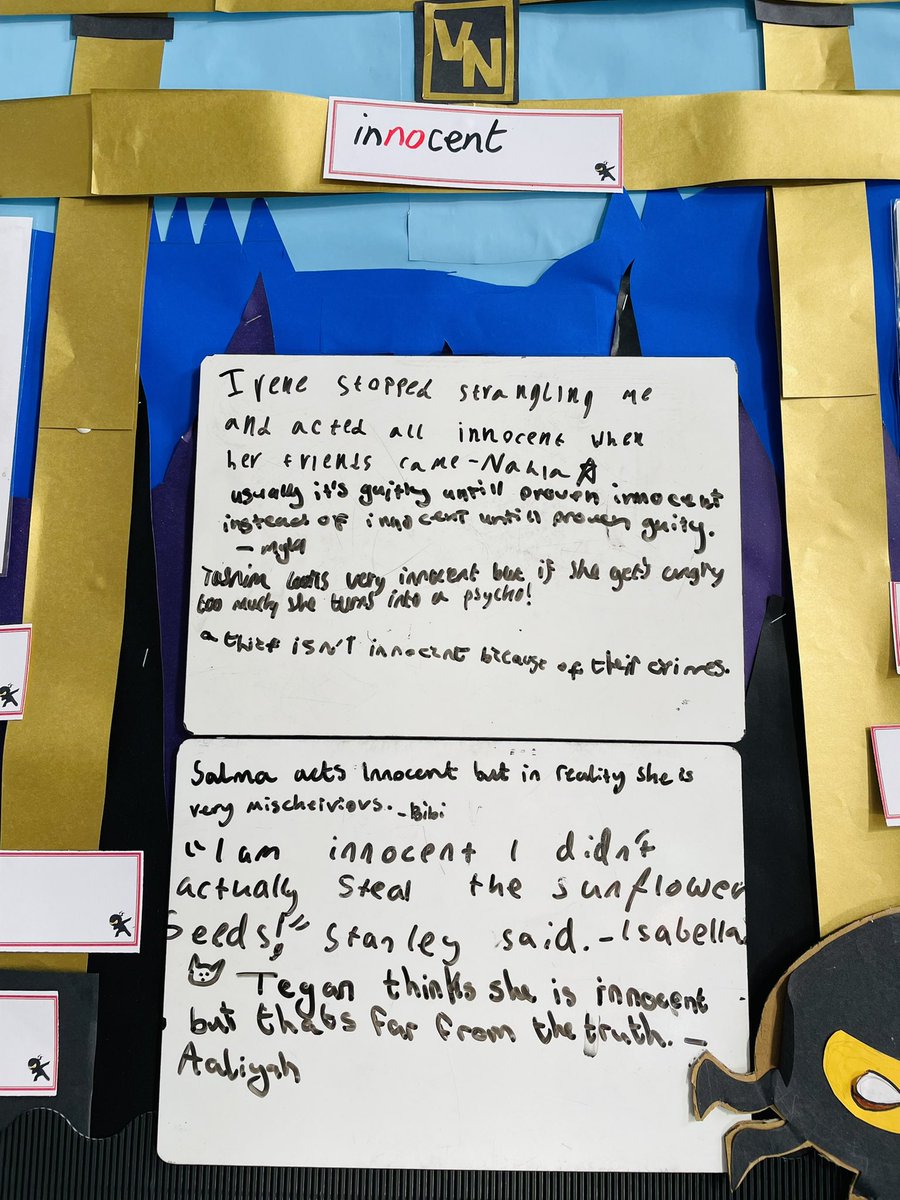 VN
innocent
Irene stopped strangling me
and acted all innocent when
her friends came - Nahla
usually it's guilty untill proven innocent
instead of innocent untill proven guity.
-
Tasnim looks very innocent but if she gets angry
too much she turns into a psycho!
a thief isn't innocent because of their crimes.
Salma acts Innocent but in reality she is
very mischeiviors. - Bibi
"I am innocent I didn't
actually steal the sunflower
Seeds!" Stanley said. - Isabella
Tegan thinks she is innocent
but thats far from the truth. -
Aaliyah